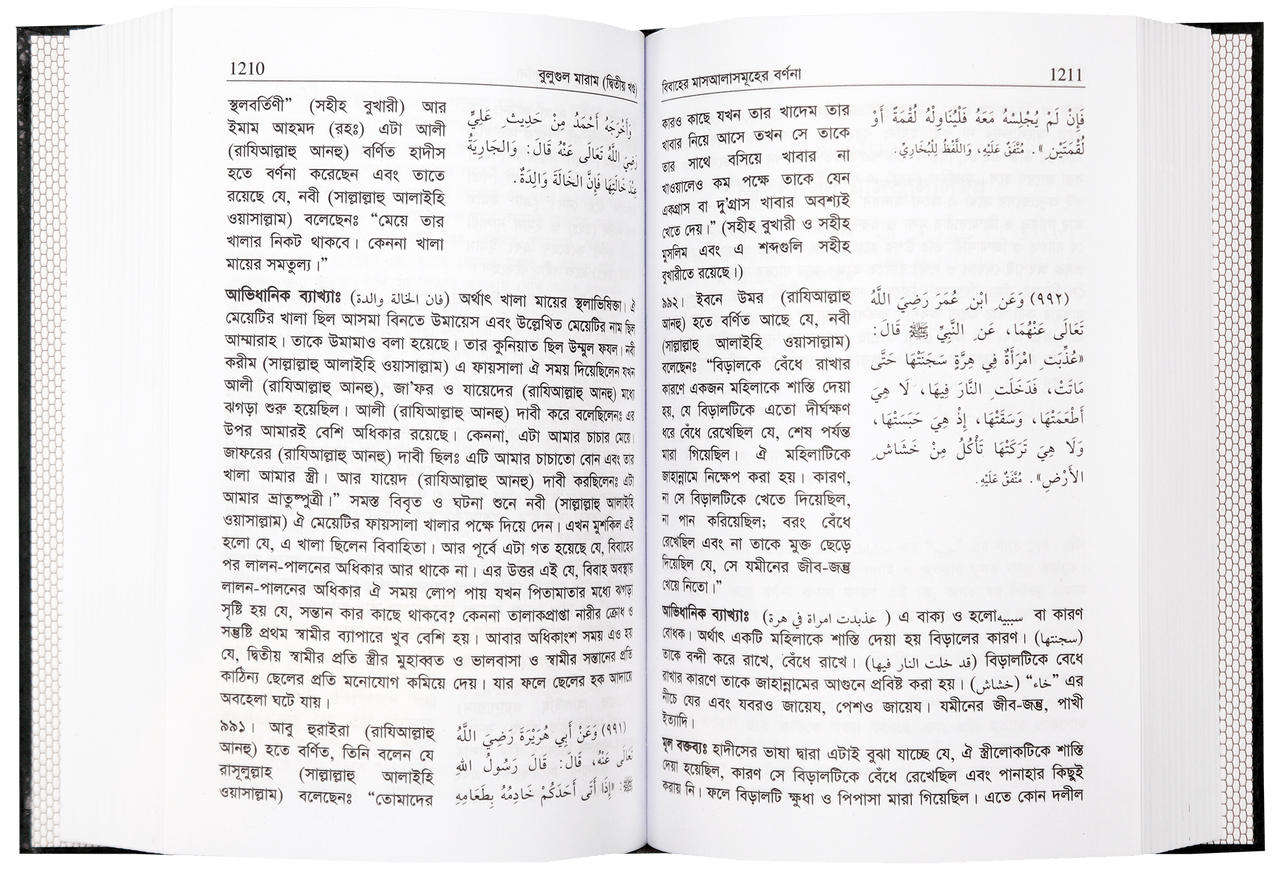 1210
বুলুগুল মারাম (দ্বিতীয় খণ্ড)
স্থলবর্তিণী” (সহীহ বুখারী) আর
ইমাম আহমদ (রহঃ) এটা আলী
(রাযিআল্লাহু আনহু) বর্ণিত হাদীস
হতে বর্ণনা করেছেন এবং তাতে
রয়েছে যে, নবী (সাল্লাল্লাহু আলাইহি
ওয়াসাল্লাম) বলেছেনঃ “মেয়ে তার
খালার নিকট থাকবে। কেননা খালা
মায়ের সমতুল্য।”
وَأَخْرَجَهُ أَحْمَدُ مِنْ حَدِيثِ عَلِيٍّ
رَضِيَ اللَّهُ تَعَالَى عَنْهُ قَالَ: وَالْجَارِيَةُ
عِنْدَ خَالَتِهَا فَإِنَّ الْخَالَةَ وَالِدَةٌ.
আভিধানিক ব্যাখ্যাঃ (فان الخالة والدة) অর্থাৎ খালা মায়ের স্থলাভিষিক্তা। ঐ
মেয়েটির খালা ছিল আসমা বিনতে উমায়েস এবং উল্লেখিত মেয়েটির নাম ছিল
আম্মারাহ। তাকে উমামাও বলা হয়েছে। তার কুনিয়াত ছিল উম্মুল ফযল। নবী
করীম (সাল্লাল্লাহু আলাইহি ওয়াসাল্লাম) এ ফায়সালা ঐ সময় দিয়েছিলেন যখন
আলী (রাযিআল্লাহু আনহু), জা’ফর ও যায়েদের (রাযিআল্লাহু আনহু) মধ্যে
ঝগড়া শুরু হয়েছিল। আলী (রাযিআল্লাহু আনহু) দাবী করে বলেছিলেনঃ এর
উপর আমারই বেশি অধিকার রয়েছে। কেননা, এটা আমার চাচার মেয়ে।
জাফরের (রাযিআল্লাহু আনহু) দাবী ছিলঃ এটি আমার চাচাতো বোন এবং তার
খালা আমার স্ত্রী। আর যায়েদ (রাযিআল্লাহু আনহু) দাবী করছিলেনঃ এটা
আমার ভ্রাতুষ্পুত্রী।” সমস্ত বিবৃত ও ঘটনা শুনে নবী (সাল্লাল্লাহু আলাইহি
ওয়াসাল্লাম) ঐ মেয়েটির ফায়সালা খালার পক্ষে দিয়ে দেন। এখন মুশকিল এই
হলো যে, এ খালা ছিলেন বিবাহিতা। আর পূর্বে এটা গত হয়েছে যে, বিবাহের
পর লালন-পালনের অধিকার আর থাকে না। এর উত্তর এই যে, বিবাহ অবস্থায়
লালন-পালনের অধিকার ঐ সময় লোপ পায় যখন পিতামাতার মধ্যে ঝগড়া
সৃষ্টি হয় যে, সন্তান কার কাছে থাকবে? কেননা তালাকপ্রাপ্তা নারীর ক্রোধ ও
সন্তুষ্টি প্রথম স্বামীর ব্যাপারে খুব বেশি হয়। আবার অধিকাংশ সময় এও হয়
যে, দ্বিতীয় স্বামীর প্রতি স্ত্রীর মুহাব্বত ও ভালবাসা ও স্বামীর সন্তানের প্রতি
কাঠিন্য ছেলের প্রতি মনোযোগ কমিয়ে দেয়। যার ফলে ছেলের হক আদায়ে
অবহেলা ঘটে যায়।
৯৯১। আবু হুরাইরা (রাযিআল্লাহু
আনহু) হতে বর্ণিত, তিনি বলেন যে
রাসূলুল্লাহ (সাল্লাল্লাহু আলাইহি
ওয়াসাল্লাম) বলেছেনঃ “তোমাদের
(٩٩١) وَعَنْ أَبِي هُرَيْرَةَ رَضِيَ اللَّهُ
تَعَالَى عَنْهُ، قَالَ: قَالَ رَسُولُ اللهِ
ﷺ: «إِذَا أَتَى أَحَدَكُمْ خَادِمُهُ بِطَعَامِهِ
বিবাহের মাসআলাসমূহের বর্ণনা
1211
কারও কাছে যখন তার খাদেম তার
খাবার নিয়ে আসে তখন সে তাকে
তার সাথে বসিয়ে খাবার না
খাওয়ালেও কম পক্ষে তাকে যেন
একগ্রাস বা দু’গ্রাস খাবার অবশ্যই
খেতে দেয়।” (সহীহ বুখারী ও সহীহ
মুসলিম এবং এ শব্দগুলি সহীহ
বুখারীতে রয়েছে।)
فَإِنْ لَمْ يُجْلِسْهُ مَعَهُ فَلْيُنَاوِلْهُ لُقْمَةً أَوْ
لُقْمَتَيْنِ». مُتَّفَقٌ عَلَيْهِ، وَاللَّفْظُ لِلْبُخَارِيِّ.
৯৯২। ইবনে উমর (রাযিআল্লাহু
আনহু) হতে বর্ণিত আছে যে, নবী
(সাল্লাল্লাহু আলাইহি ওয়াসাল্লাম)
বলেছেনঃ “বিড়ালকে বেঁধে রাখার
কারণে একজন মহিলাকে শাস্তি দেয়া
হয়, যে বিড়ালটিকে এতো দীর্ঘক্ষণ
ধরে বেঁধে রেখেছিল যে, শেষ পর্যন্ত
মারা গিয়েছিল। ঐ মহিলাটিকে
জাহান্নামে নিক্ষেপ করা হয়। কারণ,
না সে বিড়ালটিকে খেতে দিয়েছিল,
না পান করিয়েছিল; বরং বেঁধে
রেখেছিল এবং না তাকে মুক্ত ছেড়ে
দিয়েছিল যে, সে যমীনের জীব-জন্তু
খেয়ে নিতো।”
(٩٩٢) وَعَنِ ابْنِ عُمَرَ رَضِيَ اللَّهُ
تَعَالَى عَنْهُمَا، عَنِ النَّبِيِّ ﷺ قَالَ:
«عُذِّبَتِ امْرَأَةٌ فِي هِرَّةٍ سَجَنَتْهَا حَتَّى
مَاتَتْ، فَدَخَلَتِ النَّارَ فِيهَا، لَا هِيَ
أَطْعَمَتْهَا، وَسَقَتْهَا، إِذْ هِيَ حَبَسَتْهَا،
وَلَا هِيَ تَرَكَتْهَا تَأْكُلُ مِنْ خَشَاشِ
الأَرْضِ». مُتَّفَقٌ عَلَيْهِ.
আভিধানিক ব্যাখ্যাঃ (عذبدت امراة في هرة ) এ বাক্য ও হলোسببيه বা কারণ
বোধক। অর্থাৎ একটি মহিলাকে শাস্তি দেয়া হয় বিড়ালের কারণ। (سجنتها)
তাকে বন্দী করে রাখে, বেঁধে রাখে। (قد خلت النار فيها) বিড়ালটিকে বেধে
রাখার কারণে তাকে জাহান্নামের আগুনে প্রবিষ্ট করা হয়। (خشاش) “خاء” এর
নীচে যের এবং যবরও জায়েয, পেশও জায়েয। যমীনের জীব-জন্তু, পাখী
ইত্যাদি।
মূল বক্তব্যঃ হাদীসের ভাষা দ্বারা এটাই বুঝা যাচ্ছে যে, ঐ স্ত্রীলোকটিকে শাস্তি
দেয়া হয়েছিল, কারণ সে বিড়ালটিকে বেঁধে রেখেছিল এবং পানাহার কিছুই
করায় নি। ফলে বিড়ালটি ক্ষুধা ও পিপাসা মারা গিয়েছিল। এতে কোন দলীল